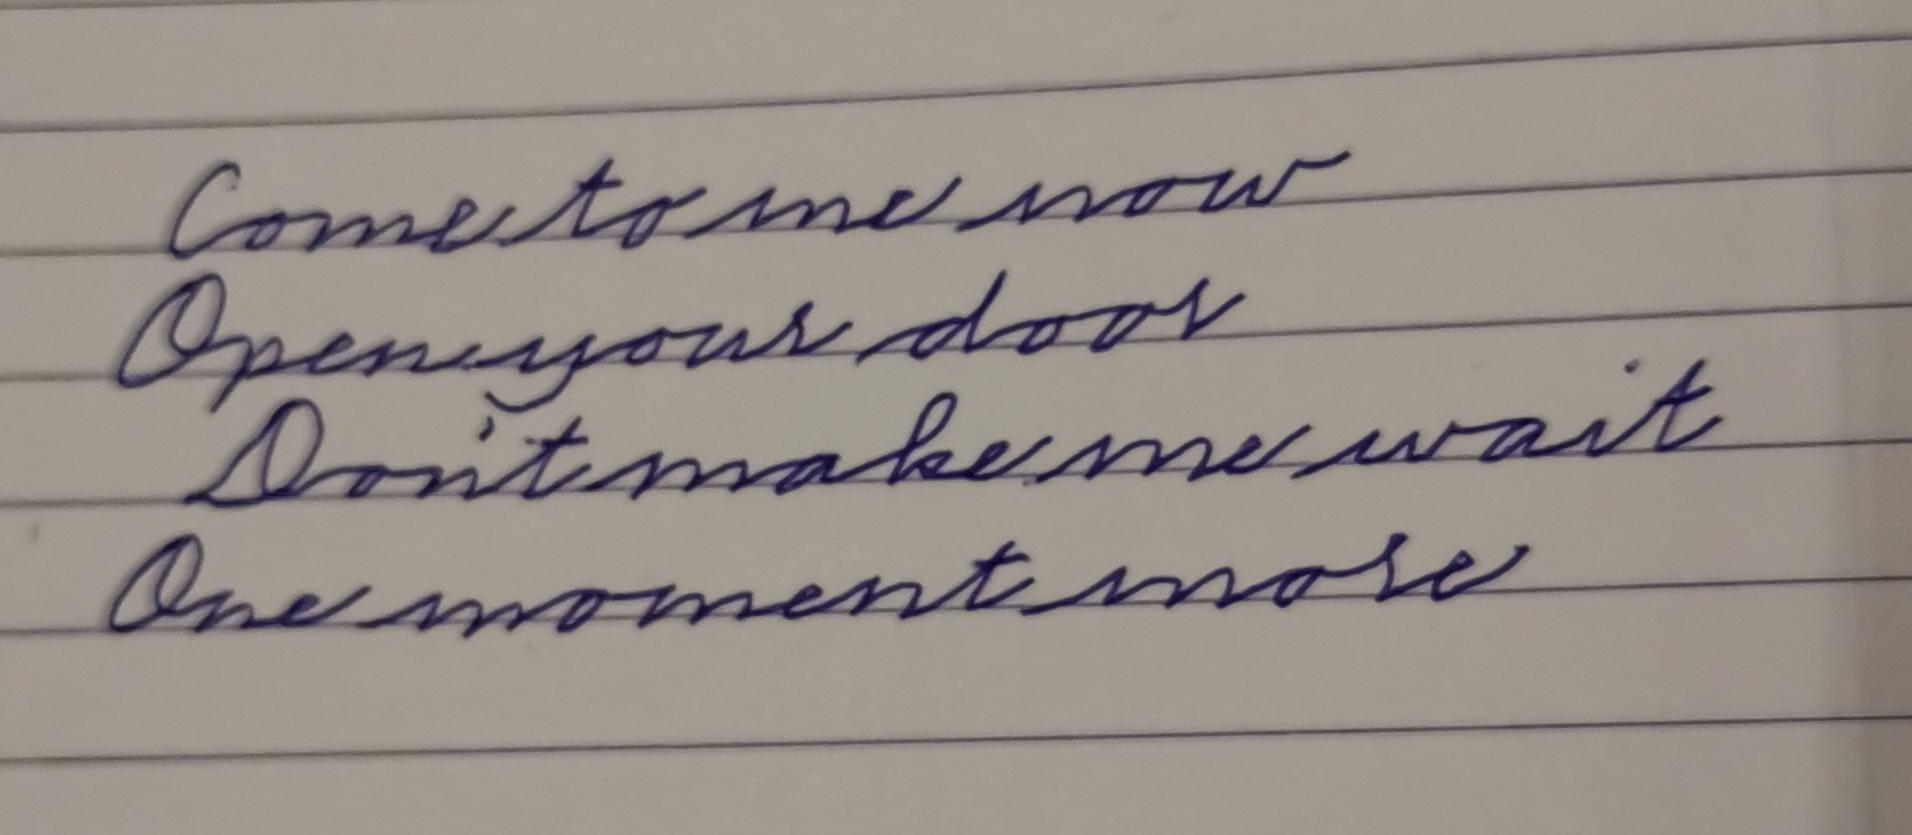 Come to me now
Open your door
Don't make me wait
One moment more